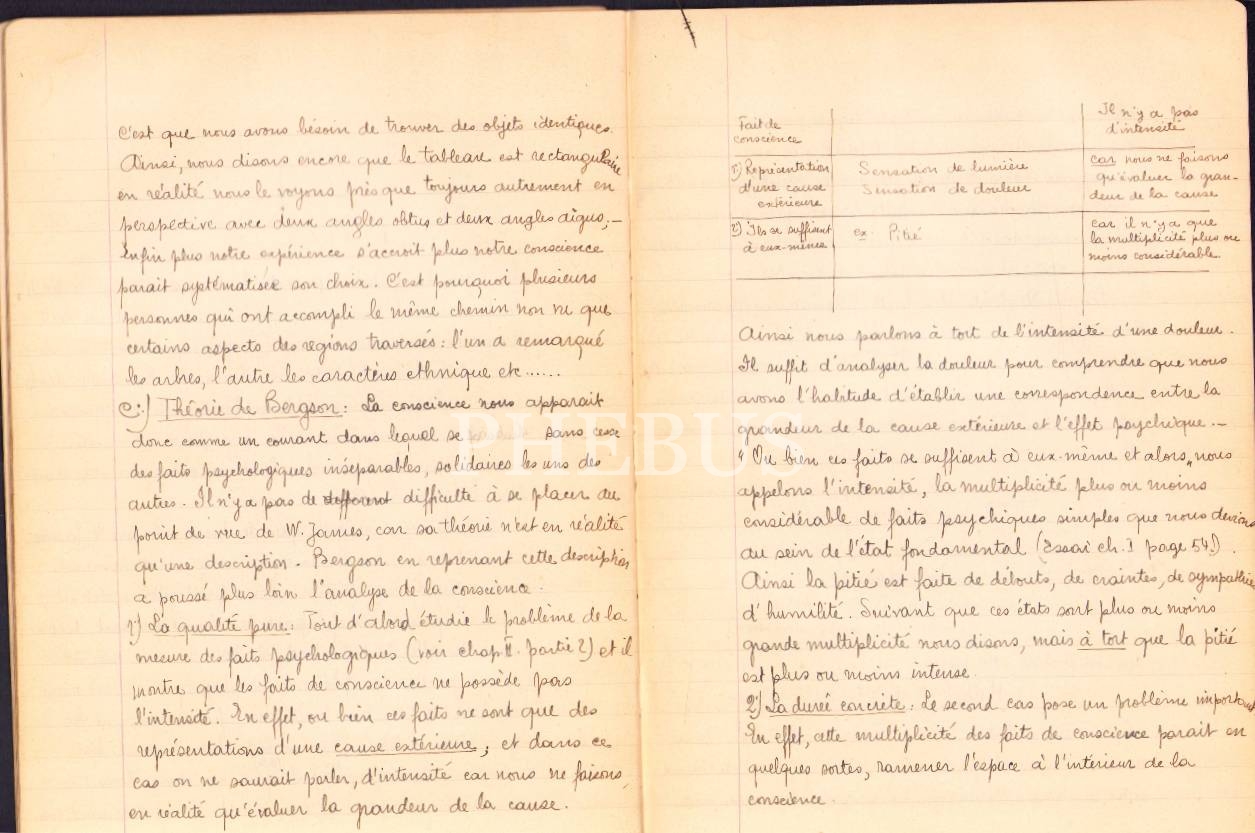 C'est que nous avons bésoin de trouver des objets identiques.
Ainsi, nous disons encore que le tableau est rectangulaire
en réalité nous le voyons presque toujours autrement en
perspective avec deux angles obtus et deux angles aigus, –
Enfin plus notre expérience s'accroit plus notre conscience
parait systématiser son choix. C'est pourquoi plusieurs
personnes qui ont accompli le même chemin non vu que
certains aspects des régions traversés : l'un a remarqué
les arbres, l'autre les caractères ethnique etc......
C:) Théorie de Bergson : La conscience nous apparait
donc comme un courant dans lequal se sans cesse
des faits psychologiques inséparables, solidaires les uns des
autres. Il n'y a pas de difficulté à se placer au
point de vue de W. James, car sa théorie n'est en réalité
qu'une description. Bergson en reprenant cette description
a poussé plus loin l'analyse de la conscience.
1°) La qualité pure : Tout d'abord étudie le problème de la
mesure des faits psychologiques (voir chap II. partie 2) et il
montre que les faits de conscience ne possède pas
l'intensité. En effet, ou bien ces faits ne sont que des
représentations d'une cause extérieure, et dans ce
cas on ne saurait parler, d'intensité car nous ne faisons
en réalité qu'évaluer la grandeur de la cause.
Fait de
conscience
Il n'y a pas
d'intensité
1°) Représentation
d'une cause
extérieure
Sensation de lumière
Sensation de douleur
car nous ne faisons
qu'évaluer la gran-
deur de la cause
2°) Ils se suffisent
à eux-mêmes
ex. Pitié
car il n'y a que
la multiplicité plus ou
moins considérable.
Ainsi nous parlons à tort de l'intensité d'une douleur.
Il suffit d'analyser la douleur pour comprendre que nous
avons l'habitude d'établir une correspondence entre la
grandeur de la cause extérieure et l'effet psychique. –
"Ou bien ces faits se suffisent à eux-même et alors" nous
appelons l'intensité, la multiplicité plus ou moins
considérable de faits psychiques simples que nous devinons
au sein de l'état fondamental (Essai ch. I page 54!).
Ainsi la pitié est faite de dégouts, de craintes, de sympathie
d'humilité. Suivant que ces états sont plus ou moins
grande multiplicité nous disons, mais à tort que la pitié
est plus ou moins intense.
2°) La dureé concrète : Le second cas pose un problème important
En effet, cette multiplicité des faits de conscience parait en
quelques sortes, ramener l'espace à l'intérieur de la
conscience.
PHEBUS